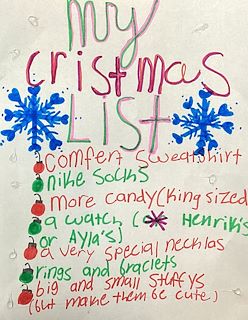 my
cristmas
LIST
comfert sweatshirt
nike socks
more candy(king sized
a watch (or Henriks
or Ayla's)
a very special necklas
rings and braclets
big and small STuffys
(but make them be cute)